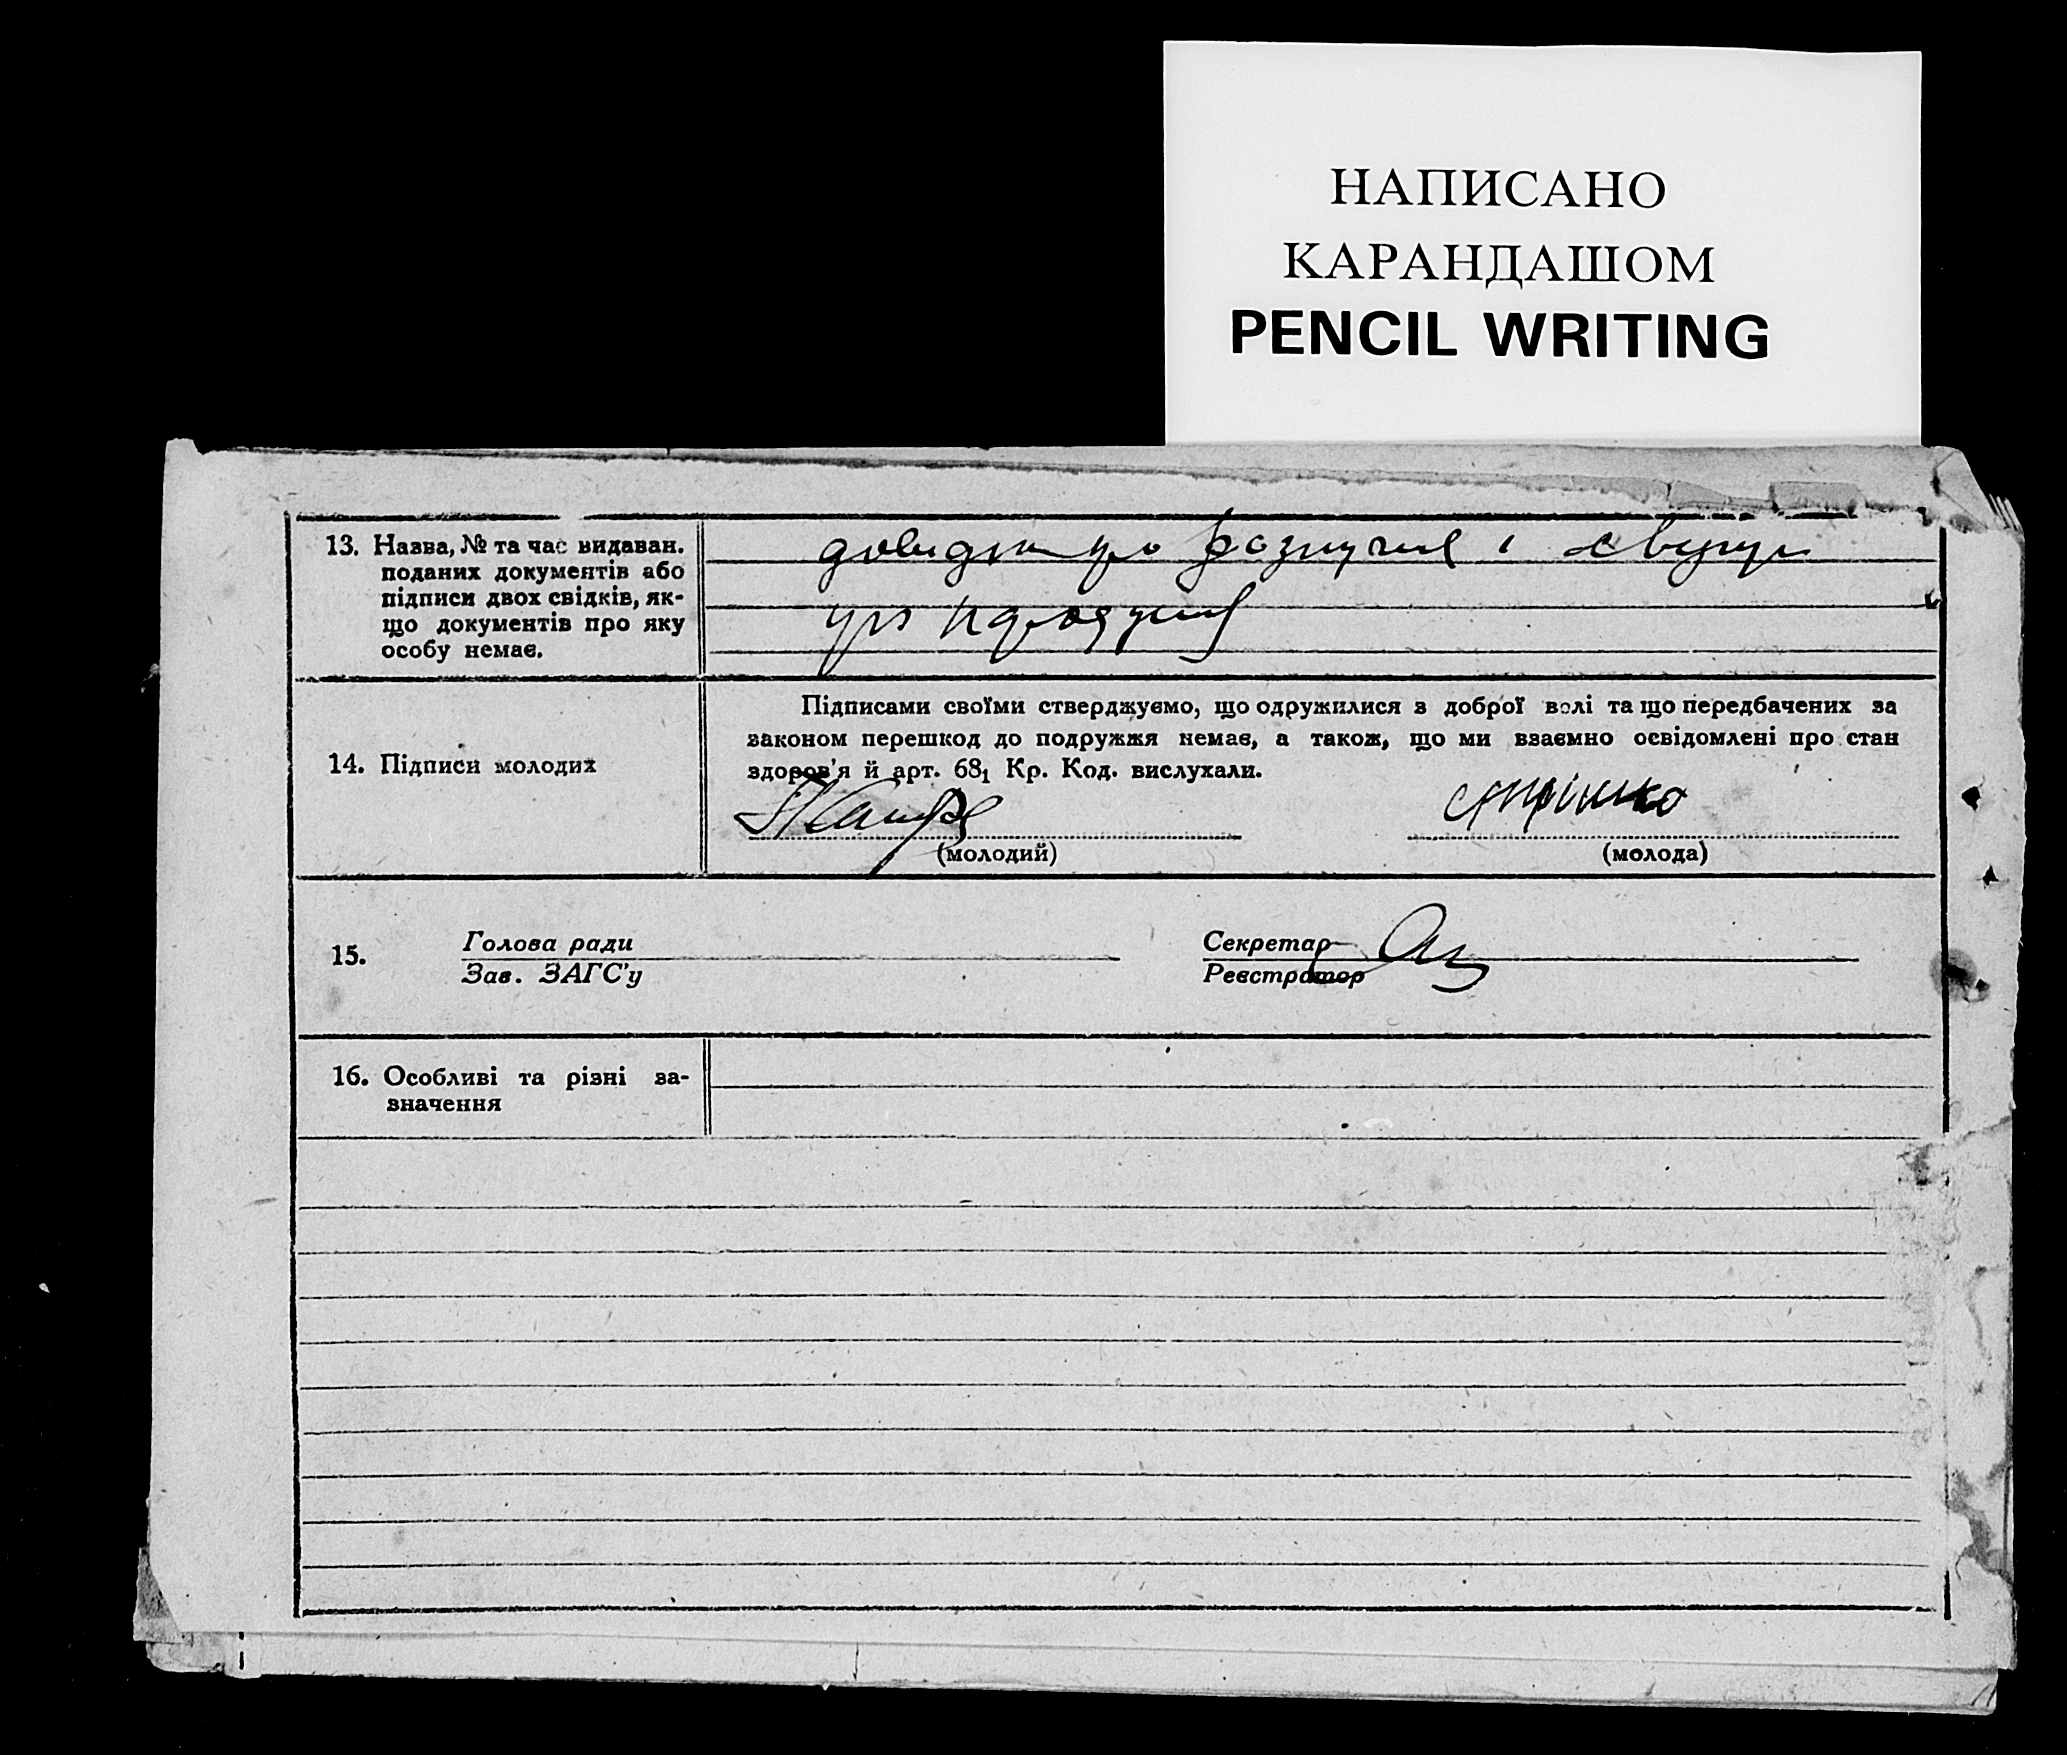 НАПИСАНО
КАРАНДАШОМ
PENCIL WRITING
13. Назва, № та час видаван.
поданих документів або
підписи двох свідків, як-
що документів про яку
особу немає.
довидки про і
про
14. Підписи молодих
Підписами своїми стверджуємо, що одружилися з доброї волі та що передбачених за
законом перешкод до подружжя немає, а також, що ми взаємно освідомлені про стан
здоров'я й арт. 68₁ Кр. Код. вислухали.
(молодий)
(молода)
15.
Голова ради
Зав. ЗАГС'у
Секретар
Реєстратор
16. Особливі та різні за-
значення